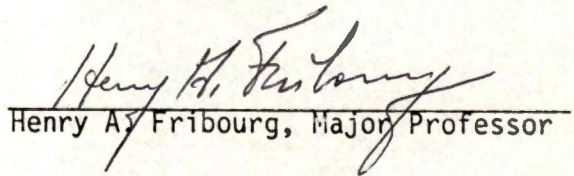 Henry A. Fribourg
Henry A. Fribourg, Major Professor